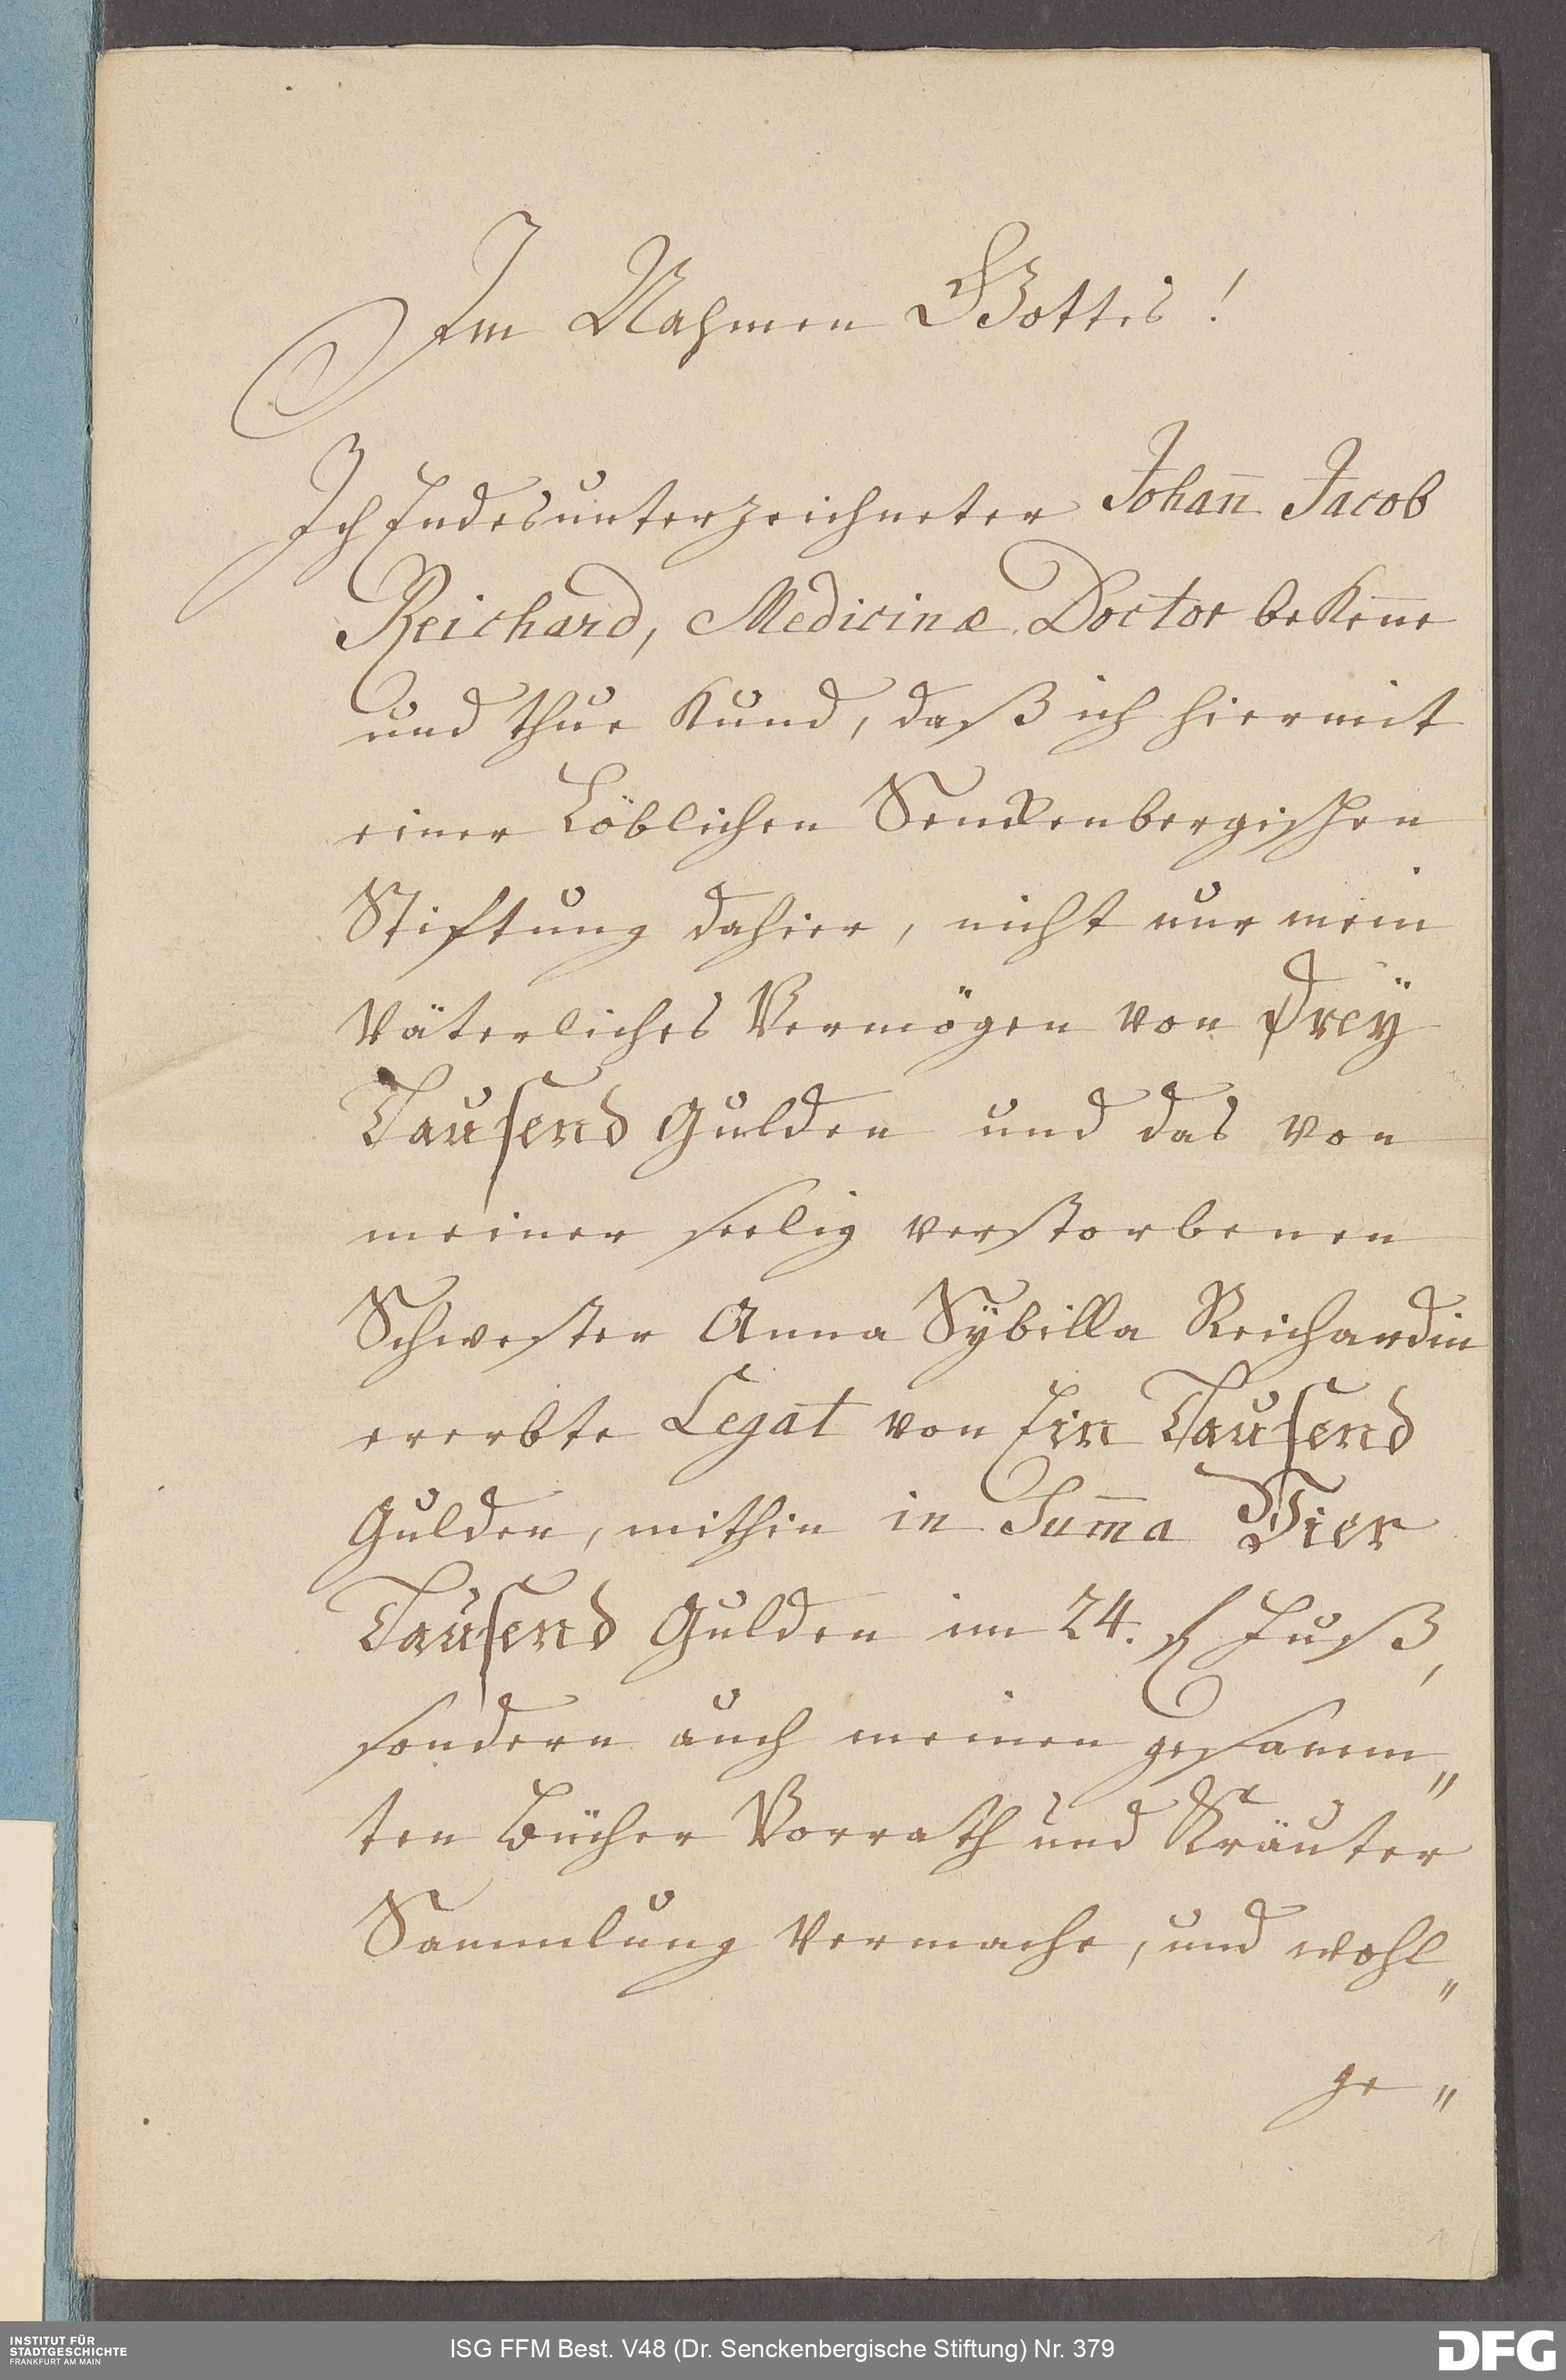 Im Nahmen Gottes!
Ich Endesunterzeichneter Johan̅ Jacob
Reichard, Medicinæ Doctor beken̅e
und thue Kund, daß ich hiermit
einer Löblichen Senckenbergischen
Stiftung dahier, nicht nur mein
Väterliches Vermögen von Dreÿ
Tausend Gulden und das von
meiner seelig verstorbenen
Schwester Anna Sÿbilla Reichardin
ererbte Legat von Ein Tausend
Gulden, mithin in Sum̅a Vier
Tausend Gulden im 24. f Fuß,
sondern auch meinen gesamm„
ten Bücher Vorrath und Kräuter
Sammlung vermache, und wohl„
ge„
1
INSTITUT FÜR
STADTGESCHICHTE
FRANKFURT AM MAIN
ISG FFM Best. V48 (Dr. Senckenbergische Stiftung) Nr. 379
DFG